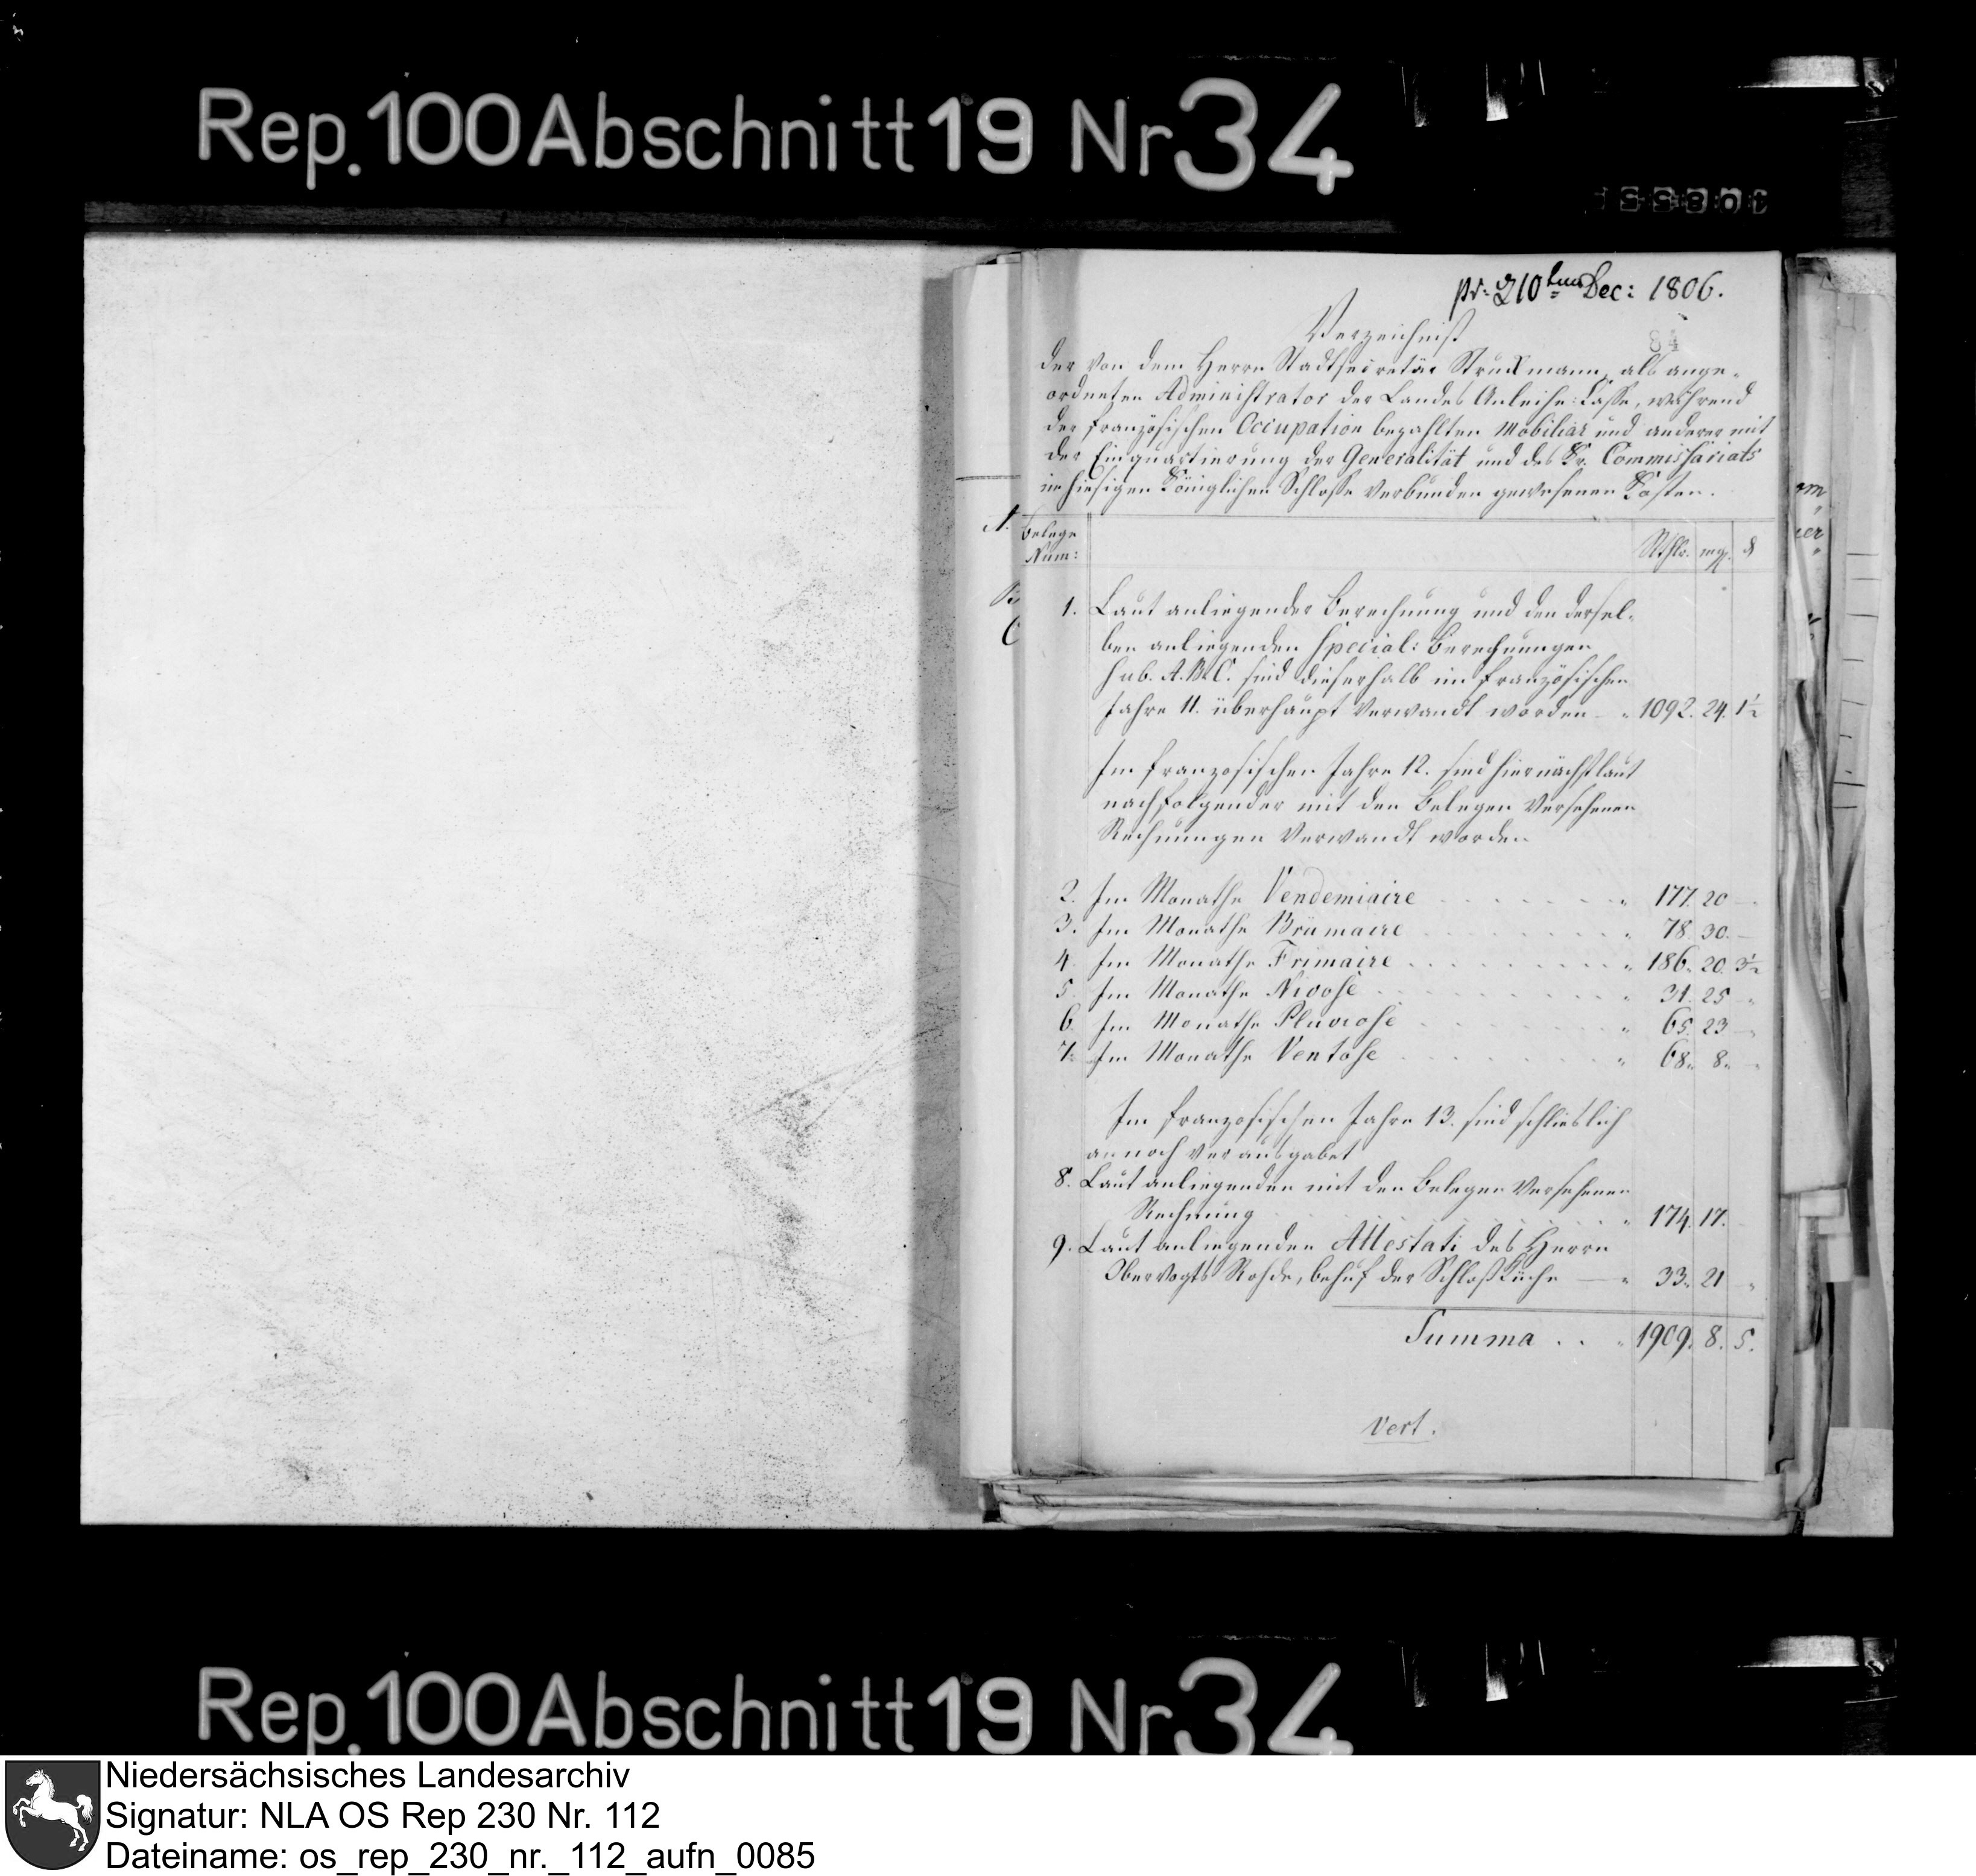 Rep. 100 Abschnitt 19 Nr 34
pr: 10tem Dec: 1806.
84
Verzeichniß
der von dem Herrn Stadtsecretär Struckmann, als ange-
ordneten Administrator der Landes Anleihe-Casse, während
der französischen Occupation bezahlten Mobiliar und anderer mit
der Einquartierung der Generalität und des Commissariats
im hiesigen Königlichen Schlosse verbunden gewesenen Kosten.
Belege
Num:
Rthlr. mg. d
1. Laut anliegender Berechnung und den dersel-
ben anliegenden Special: Berechnungen
sub. A. B. C. sind dieserhalb im französischen
Jahre 11. überhaupt verwandt worden 1092. 24. 1½
Im französischen Jahre 12. sind hiernächst laut
nachfolgender mit den Belegen versehenen
Rechnungen verwandt worden
2. Im Monathe Vendemiaire 177. 20
3. Im Monathe Brümaire 78. 30.
4. Im Monathe Frimaire 186. 20. 3½
5. Im Monathe Nivose 31. 25
6. Im Monathe Pluviose 65. 23
7. Im Monathe Ventose 68. 8.
Im französischen Jahre 13. sind schließlich
annoch verausgabet
8. Laut anliegenden mit den Belegen versehenen
Rechnung 174. 17.
9. Laut anliegenden Attestati des Herrn
Obervogts Rohde, behuf der Schloß Küche 33. 21
Summa . . 1909. 8. 5.
Vert.
A.
B
C
Rep. 100 Abschnitt 19 Nr 34
Niedersächsisches Landesarchiv
Signatur: NLA OS Rep 230 Nr. 112
Dateiname: os_rep_230_nr._112_aufn_0085